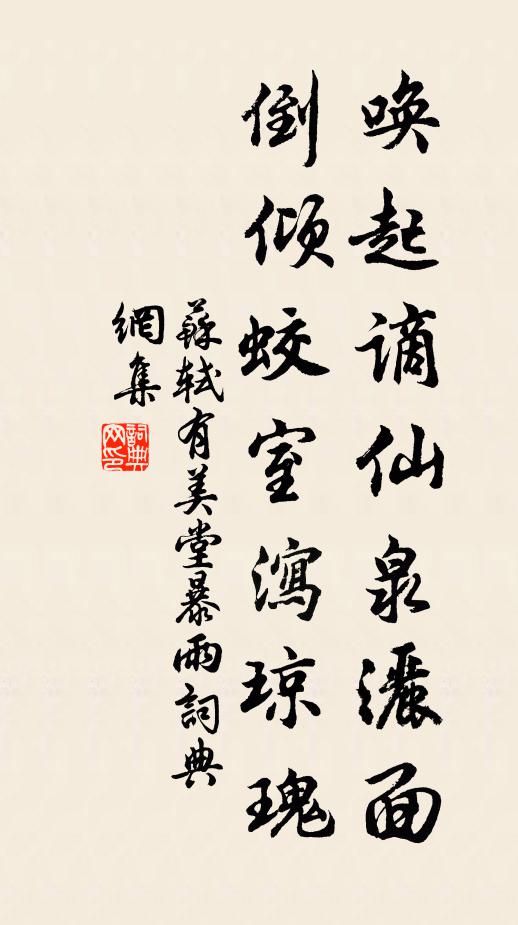 唤起谪仙泉灑面
倒倾蛟室瀉琼瑰
蘇軾有美堂暴雨詞典
網集
詞典
网印